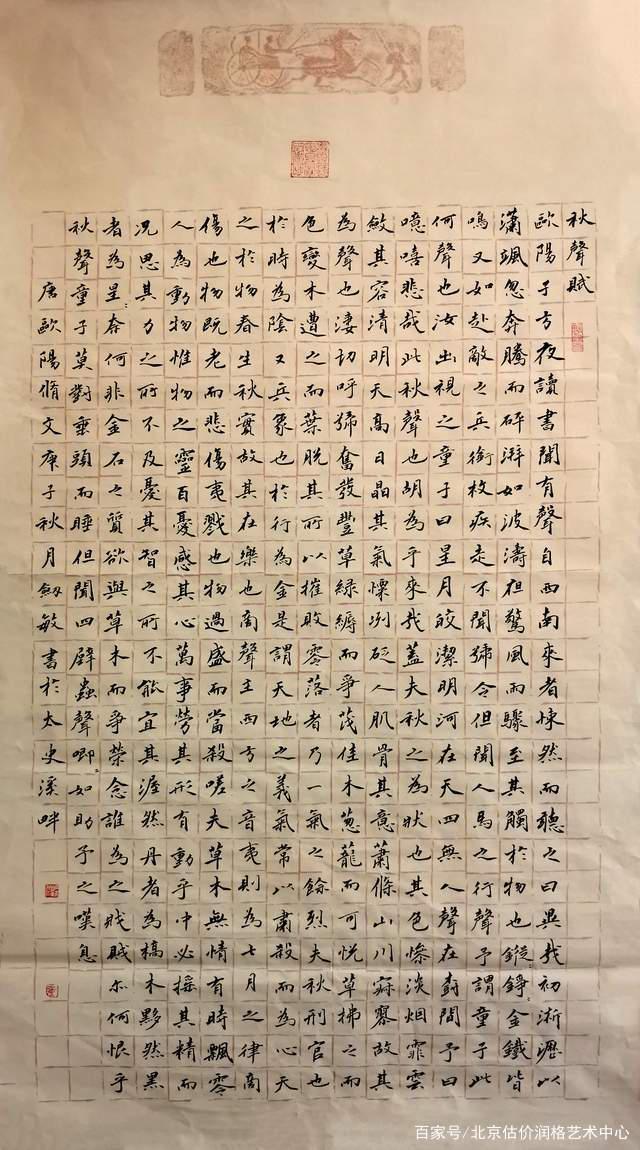 秋聲賦
歐陽子方夜讀書聞有聲自西南來者悚然而聽之曰異哉初淅瀝以
瀟颯忽奔騰而砰湃如波濤夜驚風雨驟至其觸於物也鏦〻錚〻金鐵皆
鳴又如赴敵之兵銜枚疾走不聞號令但聞人馬之行聲予謂童子此
何聲也汝出視之童子曰星月皎潔明河在天四無人聲在樹間予曰
噫嘻悲哉此秋聲也胡為乎來哉蓋夫秋之為狀也其色慘淡烟霏雲
斂其容清明天高日晶其氣慄冽砭人肌骨其意蕭條山川寂寥故其
為聲也淒切呼號奮發豐草綠縟而爭茂佳木蔥蘢而可悅草拂之而
色變木遭之而葉脫其所以摧敗零落者乃一氣之餘烈夫秋刑官也
於時為陰又兵象也於行為金是謂天地之義氣常以肅殺而為心天
之於物春生秋實故其在樂也商聲主西方之音夷則為七月之律商
傷也物既老而悲傷夷戮也物過盛而當殺嗟夫草木無情有時飄零
人為動物惟物之靈百憂感其心萬事勞其形有動乎中必搖其精而
况思其力之所不及憂其智之所不能宜其渥然丹者為槁木黟然黑
者為星〻奈何非金石之質欲與草木而爭榮念誰為之戕賊亦何恨乎
秋聲童子莫對垂頭而睡但聞四壁蟲聲唧〻如助予之嘆息
唐歐陽脩文庚子秋月劔敏書於太史溪畔
百家号/北京估价润格艺术中心